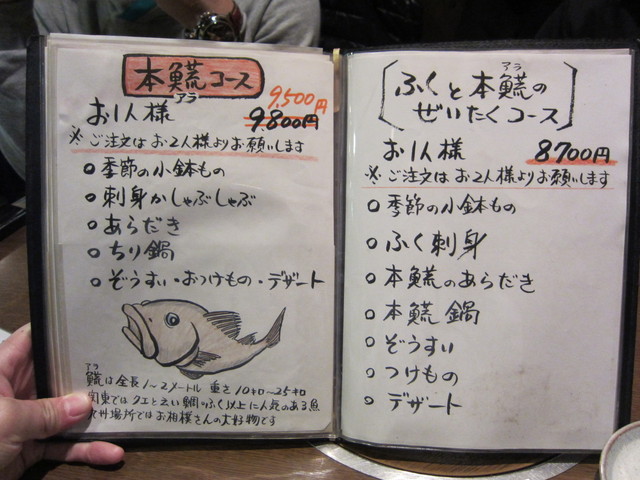 本鱶コース
アラ
お1人様
9,500円
9,800円
※ご注文はお2人様よりお願いします
○季節の小鉢もの
○刺身かしゃぶしゃぶ
○あらだき
○ちり鍋
○ぞうすい・おつけもの・デザート
アラ
は全長1〜2メートル 重さ10キロ〜25キロ
関東ではクエといい鯛やふく以上に人気のある魚
九州場所ではお相撲さんの大好物です
アラ
ふくと本鱶の
ぜいたくコース
お1人様 8700円
※ご注文はお2人様よりお願いします
○季節の小鉢もの
○ふく刺身
○本鱶のあらだき
○本鱶鍋
○ぞうすい
○つけもの
○デザート